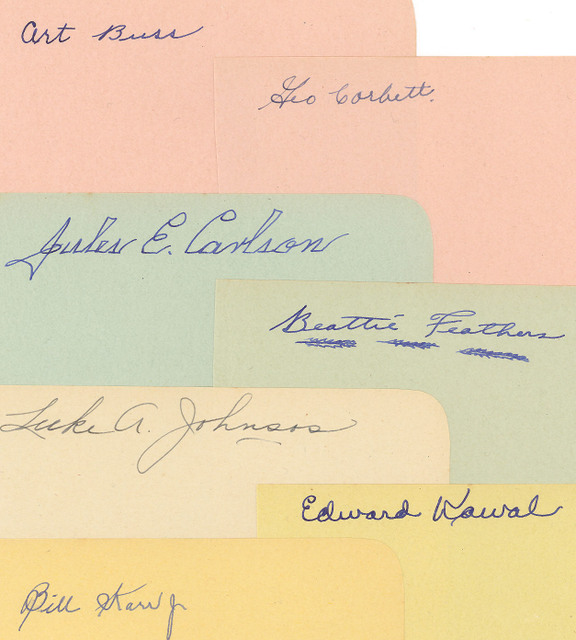 Art Buss
Geo Corbett.
Jules E. Carlson
Beattie Feathers
Luke A. Johnsos
Edward Kawal
Bill Karr Jr